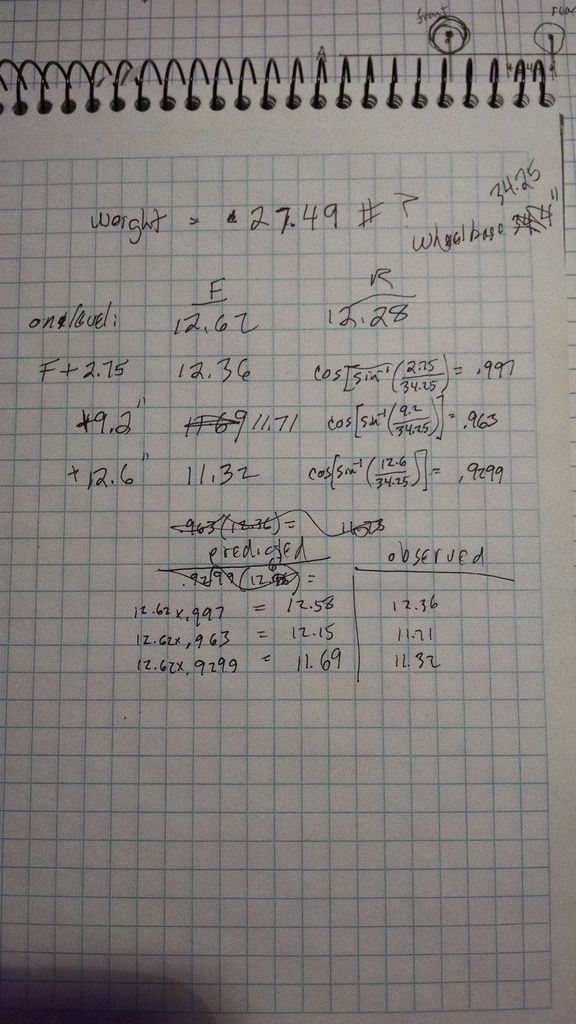 front
weight = 27.49 # ?
34.25
wheelbase 34"
F R
one level: 12.62 12.28
F + 2.75 12.36 cos[sin⁻¹(2.75/34.25) = .997
+9.2" 11.69 11.71 cos[sin⁻¹(9.2/34.25)] = .963
+12.6" 11.32 cos[sin⁻¹(12.6/34.25)] = .9299
.963(12.36) =
predicted observed
.9299 =
12.62x.997 = 12.58 12.36
12.62x.963 = 12.15 11.71
12.62x.9299 = 11.69 11.32